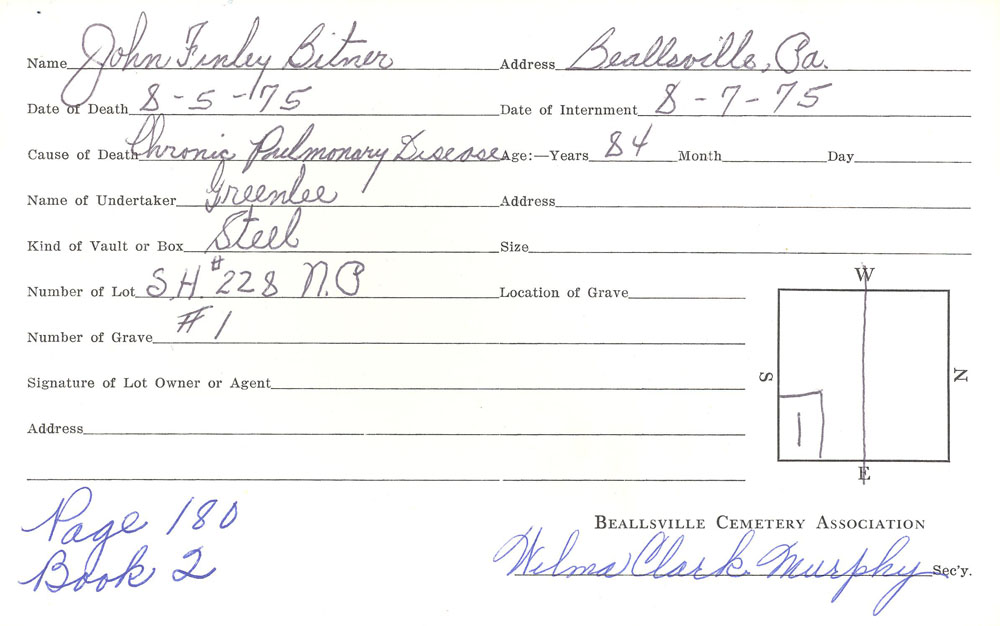 Name John Finley Bitner Address Beallsville, Pa.
Date of Death 8-5-75 Date of Internment 8-7-75
Cause of Death Chronic Pulmonary Disease Age:—Years 84 Month Day
Name of Undertaker Greenlee Address
Kind of Vault or Box Steel Size
Number of Lot S.H. #228 N.P Location of Grave
W
Number of Grave #1
S N
Signature of Lot Owner or Agent
1
Address
E
Page 180
Book 2
BEALLSVILLE CEMETERY ASSOCIATION
Wilma Clark Murphy Sec'y.